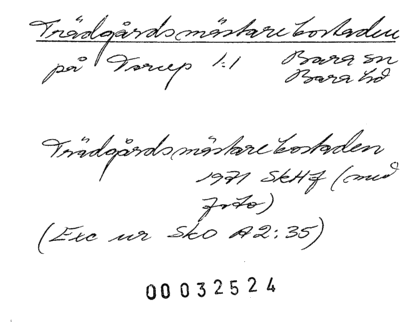 Trädgårdsmästarebostaden
på Torup 1:1 Bara sn
Bara hd
Trädgårdsmästarebostaden
1971 SkHf (med
foto)
(Exc ur SkO A2:35)
00032524